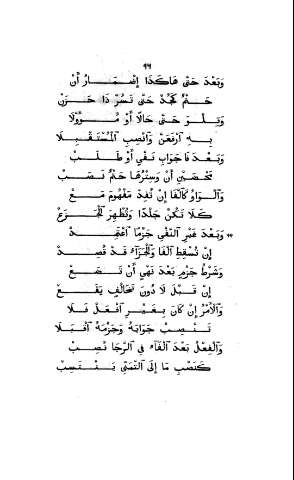 ٩٩
وَبَعْدَ حَتَّى هَاكَذَا إِضْمَارُ أَنْ
حَتْمٌ كَجُدْ حَتَّى تَسُرَّ ذَا حَزَنْ
وَتِلْوَ حَتَّى حَالًا أَوْ مُؤَوَّلَا
بِهِ ارْفَعَنَّ وَانْصِبِ الْمُسْتَقْبَلَا
وَبَعْدَ فَا جَوَابِ نَفْيٍ أَوْ طَلَبْ
مَحْضَيْنِ أَنْ وَسِتْرُهَا حَتْمٌ نَصَبْ
وَالْوَاوُ كَالْفَا إِنْ تُفِدْ مَفْهُومَ مَعْ
كَلَا تَكُنْ جَلْدًا وَتُظْهِرَ الْجَزَعْ
وَبَعْدَ غَيْرِ النَّفْيِ جَزْمًا اعْتَمِدْ
إِنْ تُسْقِطِ الْفَا وَالْجَزَاءُ قَدْ قُصِدْ
وَشَرْطُ جَزْمٍ بَعْدَ نَهْيٍ أَنْ تَضَعْ
إِنْ قَبْلَ لَا دُونَ تَخَالُفٍ يَقَعْ
وَالْأَمْرُ إِنْ كَانَ بِغَيْرِ افْعَلْ فَلَا
تَنْصِبْ جَوَابَهُ وَجَزْمَهُ اقْبَلَا
وَالْفِعْلُ بَعْدَ الْفَاءِ فِي الرَّجَا نُصِبْ
كَنَصْبِ مَا إِلَى التَّمَنِّي يَنْتَسِبْ